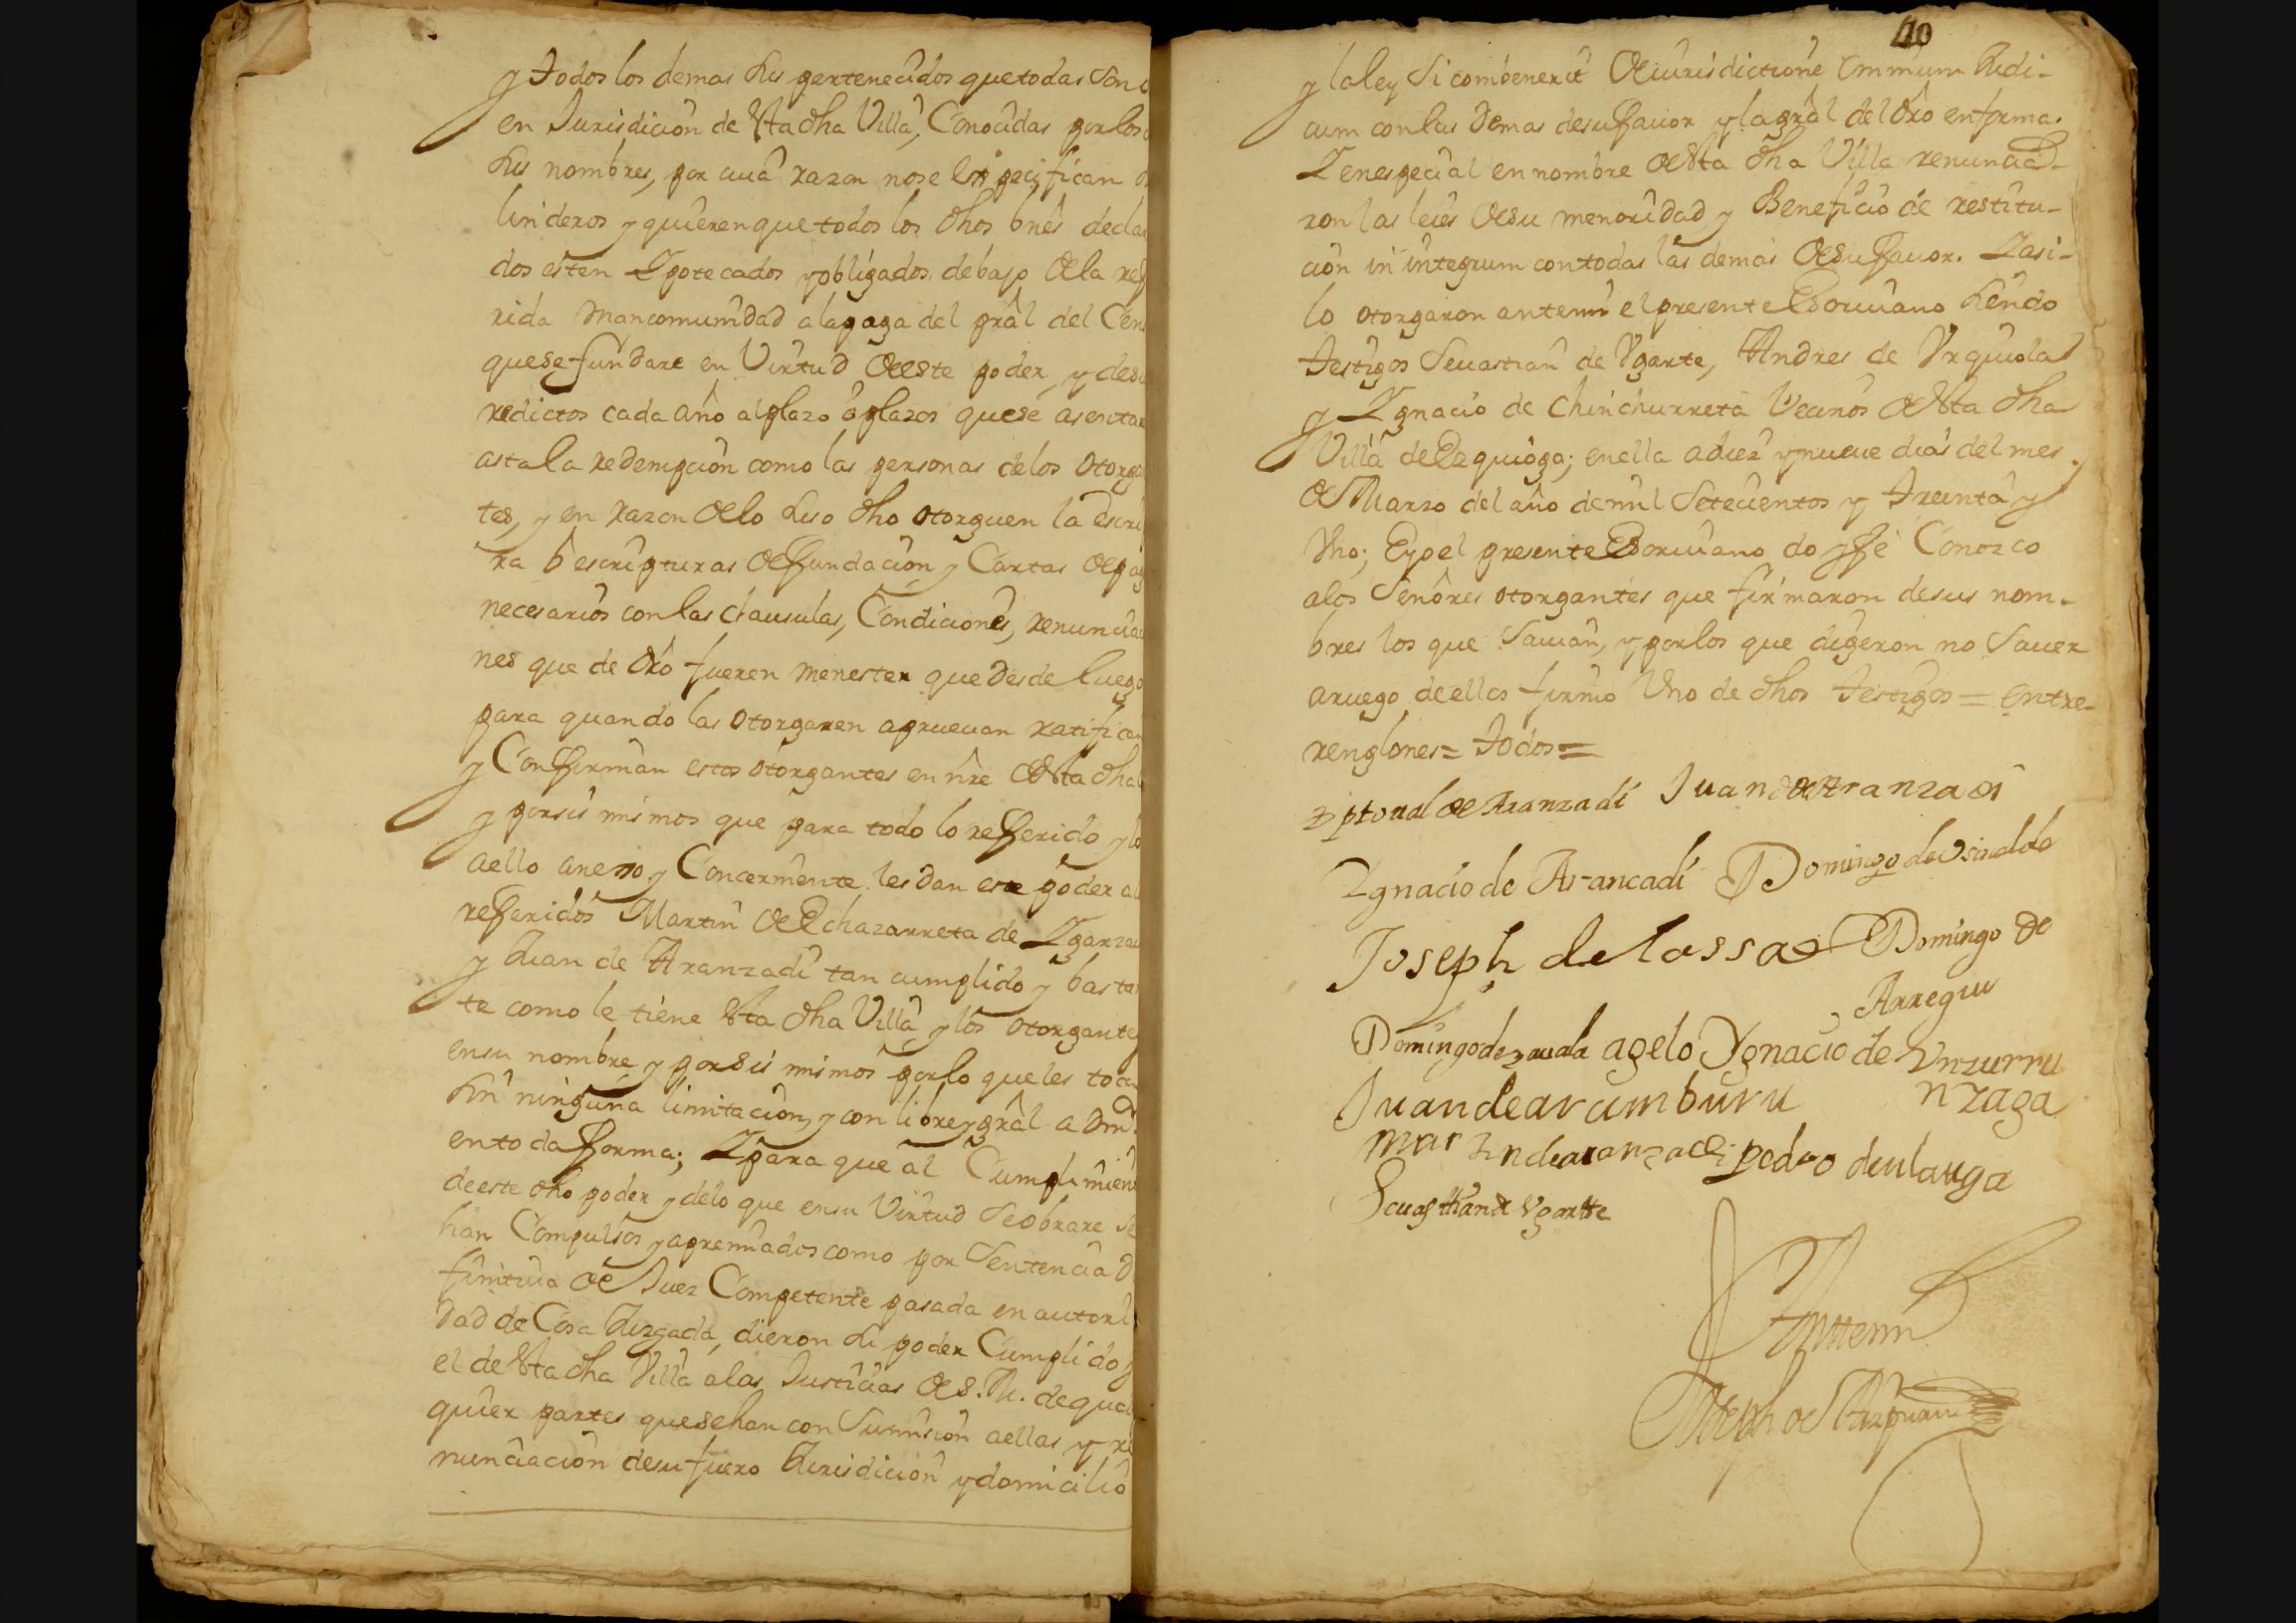 y todos los demas sus pertenecidos que todas son
en Jurisdicion de esta dha Villa, Conocidas por los
sus nombres, por cuia razon nose espezifican
linderos y quieren que todos los dhos bnes decla
dos esten Ypotecados y obligados debajo de la ref
rida Mancomunidad a la paga del pral del Cen
que se fundare en Virtud de este poder, y de su
redictos cada año al plazo ò plazos que se asentar
asta la redempcion como las personas de los Otorga
tes, y en razon de lo suso dho otorguen la escri
ra ò escripturas de fundacion y Cartas de pag
necesarios con las clausulas, Condiciones, renuncia
nes que de dro fueren menester que desde luego
para quando las otorgaren aprueuan ratifican
y Confirman estos otorgantes en nre de esta dha
y por si mismos que para todo lo referido y lo
aello anexo y Concerniente les dan este poder a
referidos Martin de Echazarreta de Ygarza
y Juan de Aranzadi tan cumplido y bastan
te como le tiene esta dha Villa y los otorgantes
en su nombre y por si mismos por lo que les toca
sin ninguna limitacion, y con libre y gral admi
en toda forma; Y para que al Cumplimien
de este dho poder y delo que en su Virtud se obrare se
han Compulsos y apremiados como por Sentencia d
finitiua de Juez Competente pasada en autori
dad de Cosa Juzgada, dieron su poder Cumplido y
el de esta dha Villa a las Justicias de S. M. de qual
quier partes que sehan con Sumision aellas y re
nunciacion de su fuero Jurisdicion y domicilio
110
y la ley Si combenerit de iurisdictione omnium Judi-
cum con las demas de su fauor y la gral del dro en forma.
Y en especial en nombre de esta dha Villa renuncia-
ron las leies de su menoridad y Beneficio de restitu-
cion in integrum con todas las demas de su fauor. Y asi-
lo otorgaron ante mi el presente Escriuano siendo
testigos Seuastian de Ygarte, Andres de Vrquiola
y Ygnacio de Chinchurreta Vecinos de esta dha
Villa de Ezquioga; en ella a diez y nueue dias del mes
de Marzo del año de mil Setecientos y treinta y
Vno; E yo el presente Escriuano doy fe Conozco
alos Señores otorgantes que firmaron de sus nom-
bres los que Sauian, y por los que digeron no Sauer
aruego de ellos firmo Vno de dhos testigos = entre-
renglones = todos =
de Aranzadi Juan de Aranzadi
Ygnacio de Arancadi Domingo de
Joseph de lassa Domingo de
Arregui
Domingo de zauala agelo Ygnacio de Vnzurru
nzaga
Juan de aramburu
Martin de aranzadi pedro de ulauga
Seuasthian de Vgartte
Antemi
Joseph de